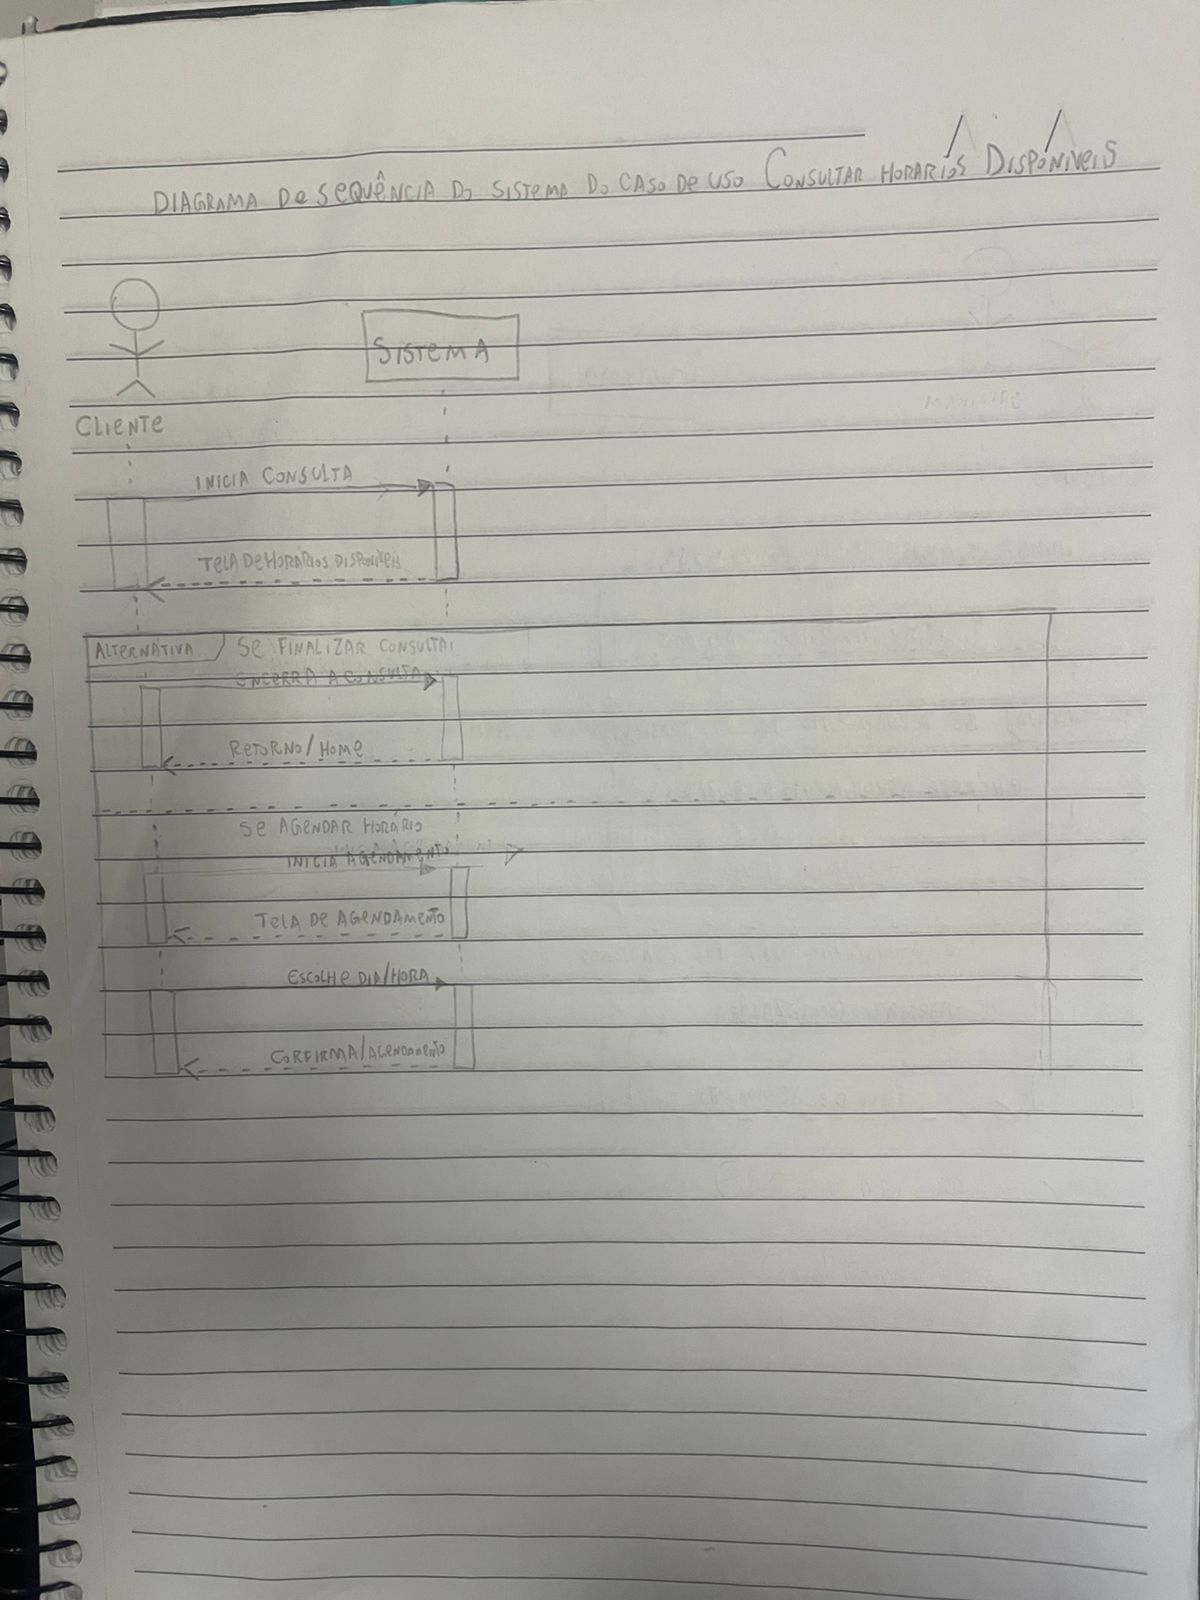 DIAGRAMA De SEQUÊNCIA Do SISTEMA DO CASO DE USO CONSULTAR HORÁRIOS DISPONÍVEIS
SISTEMA
CLIENTE
INICIA CONSULTA
TELA DE HORÁRIOS DISPONÍVEIS
ALTERNATIVA
SE FINALIZAR CONSULTA
ENCERRA A CONSULTA
RETORNO/HOME
SE AGENDAR HORÁRIO
INICIA AGENDAMENTO
TELA DE AGENDAMENTO
ESCOLHE DIA/HORA
CORFIRMA/AGENDAMENTO